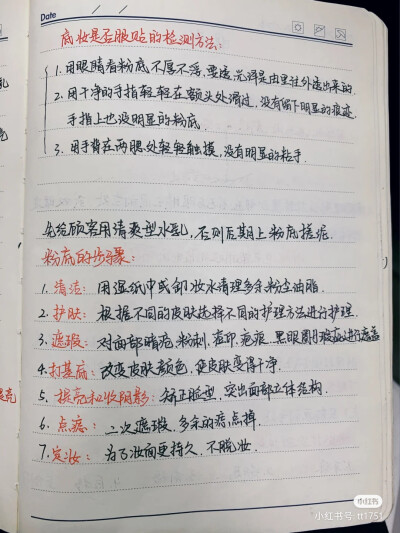 Date
底妆是否服贴的检测方法:
1. 用眼睛看粉底不厚不浮,要透,光泽是由里往外透出来的.
2. 用干净的手指轻轻在额头处滑过,没有留下明显的痕迹.
手指上也没明显的粉底.
3. 用手背在两腮处轻轻触摸,没有明显的粘手.
先给顾客用清爽型水乳,否则后期上粉底搓泥.
粉底的步骤:
1. 清洁: 用湿纸巾或卸妆水清理多余粉尘油脂
2. 护肤: 根据不同的皮肤选择不同的护理方法进行护理.
3. 遮瑕: 对面部暗疮,粉刺,痘印,疤痕,黑眼圈
4. 打基底: 改变皮肤颜色,使皮肤变得干净.
5. 提亮和收阴影: 矫正脸型,突出面部立体结构.
6. 点痣: 二次遮瑕,多余的痣点掉.
7. 定妆: 为了妆面更持久,不脱妆.
小红书
小红书号: tt1751